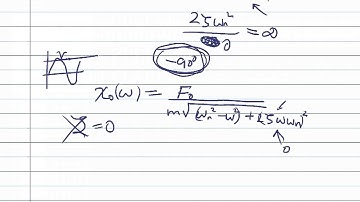 2ζωn²
0 = ∞
-90°
x₀(ω) = F₀
m√(ωn²-ω²) + 2ζωωn)²
0
ζ = 0